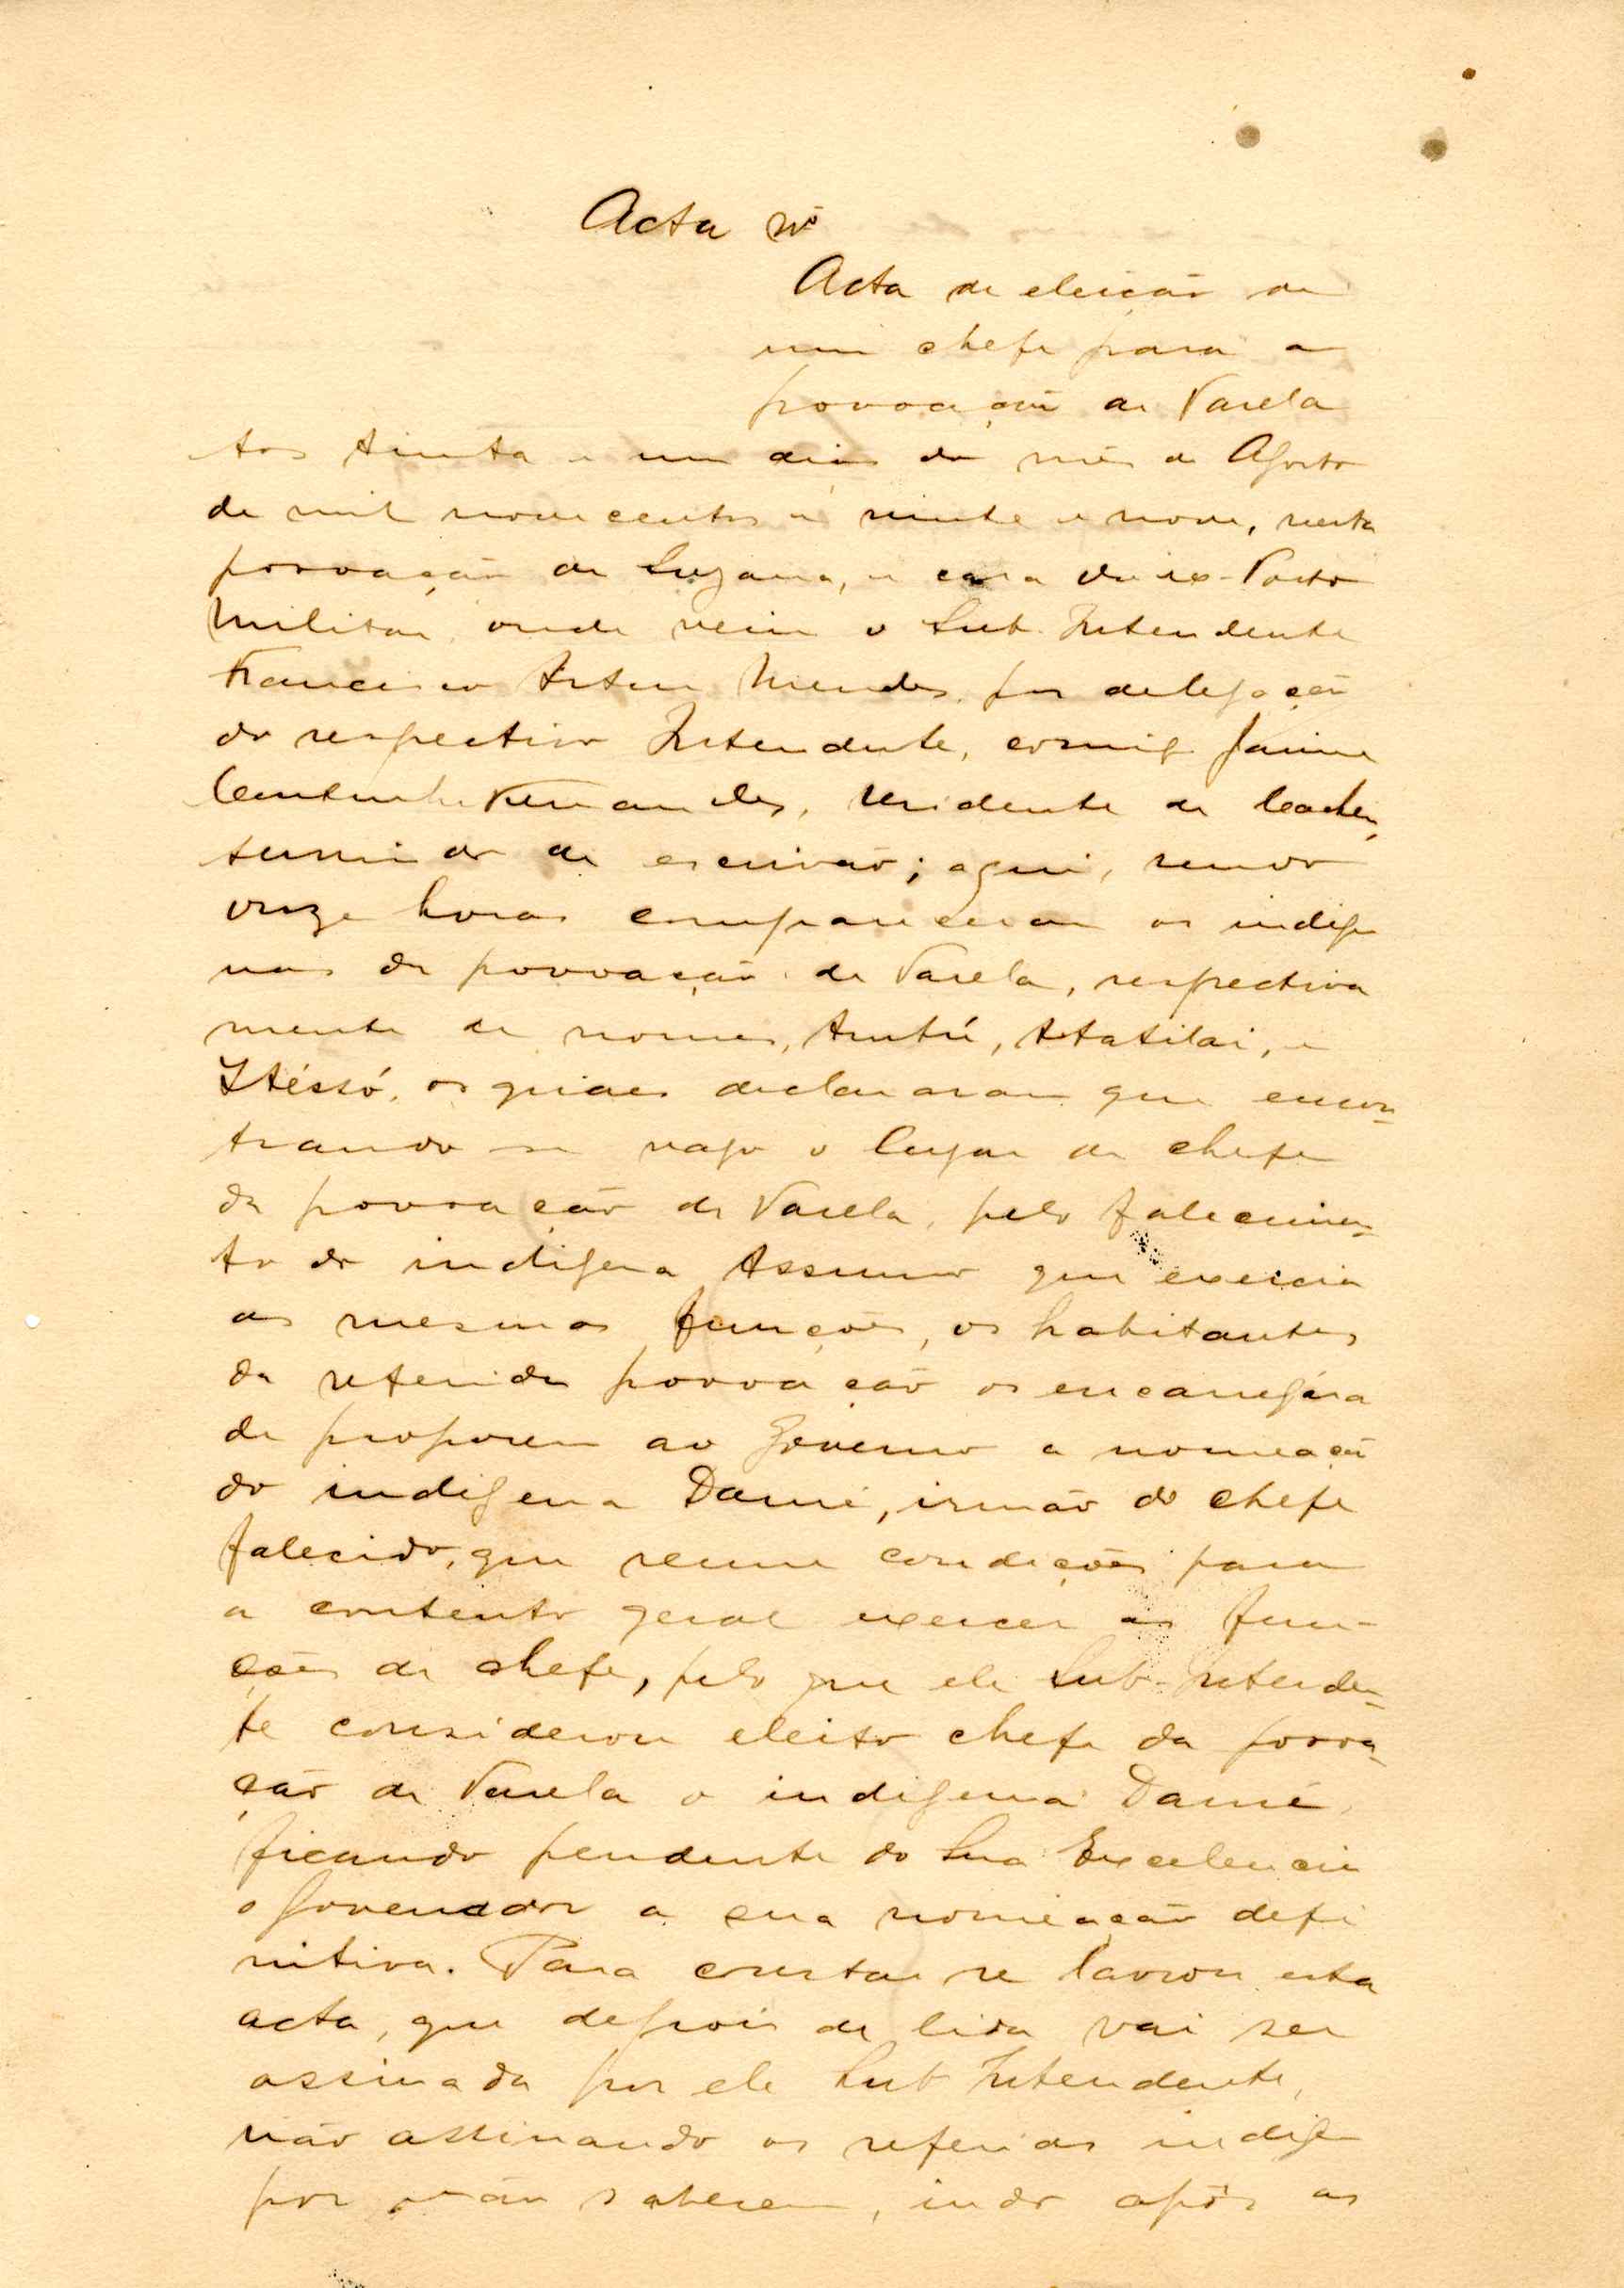 Acta nº
Acta de eleição de
um chefe para a
povoação de Varela
Aos trinta e um dias do mês de Agosto
de mil novecentos e vinte e nove, nesta
povoação de Suzana, e casa do ex-Posto
Militar, onde veiu o Sub. Intendente
Francisco Artur Mendes, por delegação
do respectivo Intendente, comigo Jaime
Coutinho Fernandes, residente de Cacheu,
servindo de escrivão; aqui, sendo
onze horas compareceram os indige
nas da povoação de Varela, respectiva
mente de nomes, Ambú, Atatilai, e
Itéssó, os quiaes declararam que encon-
trando se vago o lugar de chefe
da povoação de Varela, pelo falecimen-
to do indigena Assumo que exercia
as mesmas funções, os habitantes
da referida povoação os encarregára
de proporem ao Governo a nomeação
do indigena Damé, irmão do chefe
falecido, que reune condições para
a contento geral exercer as fun-
ções de chefe, pelo que ele Sub-Intenden-
te considerou eleito chefe da povoa-
ção de Varela o indigena Damé,
ficando pendente do Sua Excelencia
o Governador a sua nomeação defi
nitiva. Para constar se lavrou esta
acta, que depois de lida vai ser
assinada por ele Sub Intendente,
não assinando os referidos indige
por não saberem, indo após as